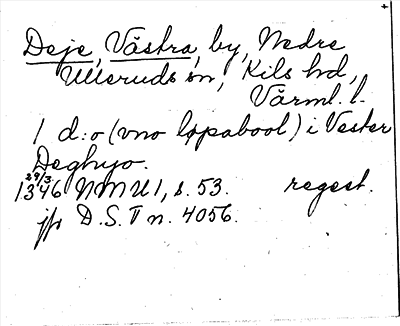 Deje, Västra, by, Nedre
Ulleruds sn, Kils hd,
Värml. l.
1 d:o (vno løpabool) i Vester
Deghyo.
29/3
1346 NMU 1, s. 53. regest.
jfr D.S. V n. 4056.